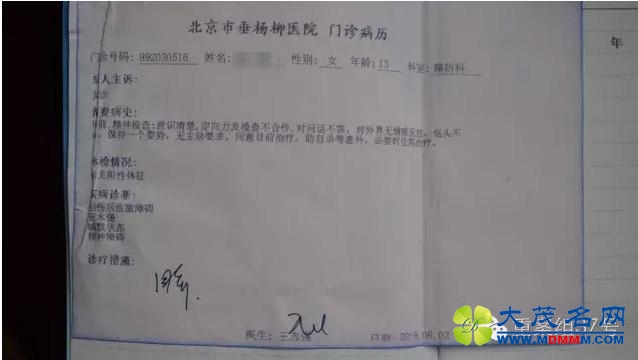 北京市垂杨柳医院 门诊病历
年
门诊号码: 992030516 姓名: 性别: 女 年龄: 13 科室: 精防科
人主诉:
病史:
精神检查: 意识清楚, 定向力及检查不合作, 对问话不答, 对外界无情感反应, 低头不
保持一个姿势, 无主动要求, 同意目前治疗, 防自杀等意外, 必要时住院治疗。
体检情况:
未见阳性体征
疾病诊断:
创伤后应激障碍
亚木僵
缄默状态
精神障碍
诊疗措施:
医生: 王志强 日期: 2016.06.02
重案组37号
大茂名网
WWW.MDMMM.COM